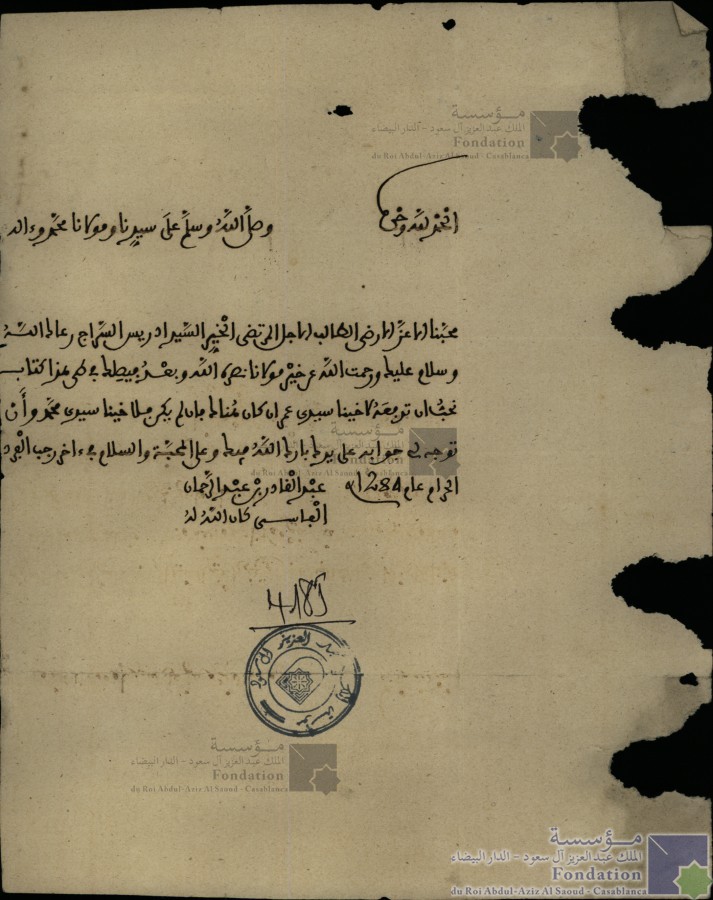 مؤسسة
الملك عبد العزيز آل سعود - الدار البيضاء
Fondation
du Roi Abdul-Aziz Al Saoud - Casablanca
الحمد لله وحده وصلى الله وسلم على سيدنا ومولانا محمد وءاله
محبنا الاعز الارضى الطالب الاجل المرتضى الخير السيد ادريس السراج رعاك الله
وسلام عليك ورحمت الله عن خير مولانا نصره الله وبعد فيصلك في طي هذا كتاب
نحب ان تدفعه لاخينا سيدي عمر ان كان هناك فان لم يكن فلاخينا سيدي محمد وأن
توجه لي جوابه على يدك بارك الله فيك وعلى المحبة والسلام في ءاخر رجب الفرد
الحرام عام 1284 عبد القادر بن عبد الرحمان
الفاسي كان الله له
4185
مؤسسة
الملك عبد العزيز آل سعود - الدار البيضاء
Fondation
du Roi Abdul-Aziz Al Saoud - Casablanca
مؤسسة
الملك عبد العزيز آل سعود - الدار البيضاء
Fondation
du Roi Abdul-Aziz Al Saoud - Casablanca